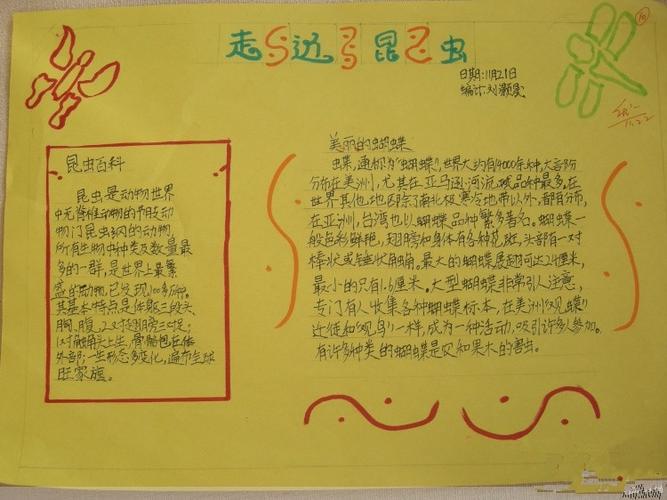 走 边 昆 虫
日期:11月21日
编计:刘颢
11.22
昆虫百科
昆虫是动物世界
中无脊椎动物的节肢动
物门昆虫纲的动物,
所有生物中种类及数量最
多的一群,是世界上最繁
盛的动物,已发现100多万种。
其基本特点是体躯三段头、
胸、腹,2对翅膀三对足;
1对触角头上生,骨骼包在体
外部;一生形态多变化,遍布全球
旺家旗。
美丽的蝴蝶
虫蝶,通称为“蝴蝶”,世界大约有14000余种,大部分
分布在美洲,尤其在亚马逊河流域品种最多,在
世界其他地区除了南北极寒冷地带以外,都有分布,
在亚洲,台湾也以蝴蝶品种繁多著名。蝴蝶一
般色彩鲜艳,翅膀和身体有各种花斑,头部有一对
棒状或锤状触角。最大的蝴蝶展翅可达24厘米,
最小的只有1.6厘米。大型蝴蝶非常引人注意,
专门有人收集各种蝴蝶标本,在美洲“观蝶”
迁徙和“观鸟”一样,成为一种活动,吸引许多人参加。
有许多种类的蝴蝶是农和果木的害虫。